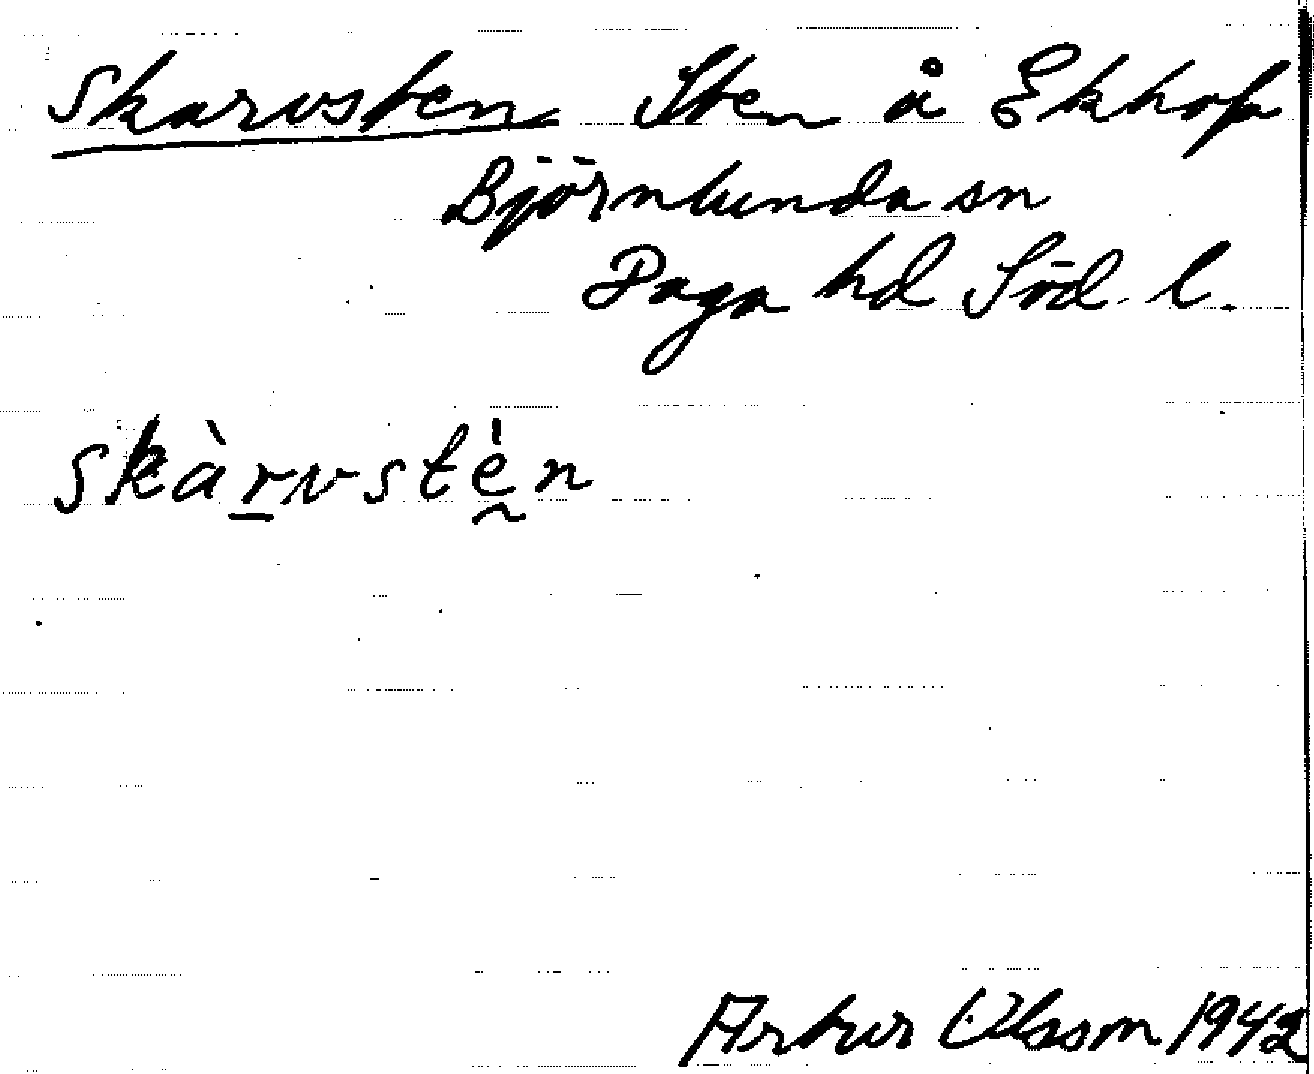 Skarvsten Sten å Ekhop
Björnlunda sn
Daga hd Söd. l.
skàr̲vstḛ̀n
Artur Olsson 1942